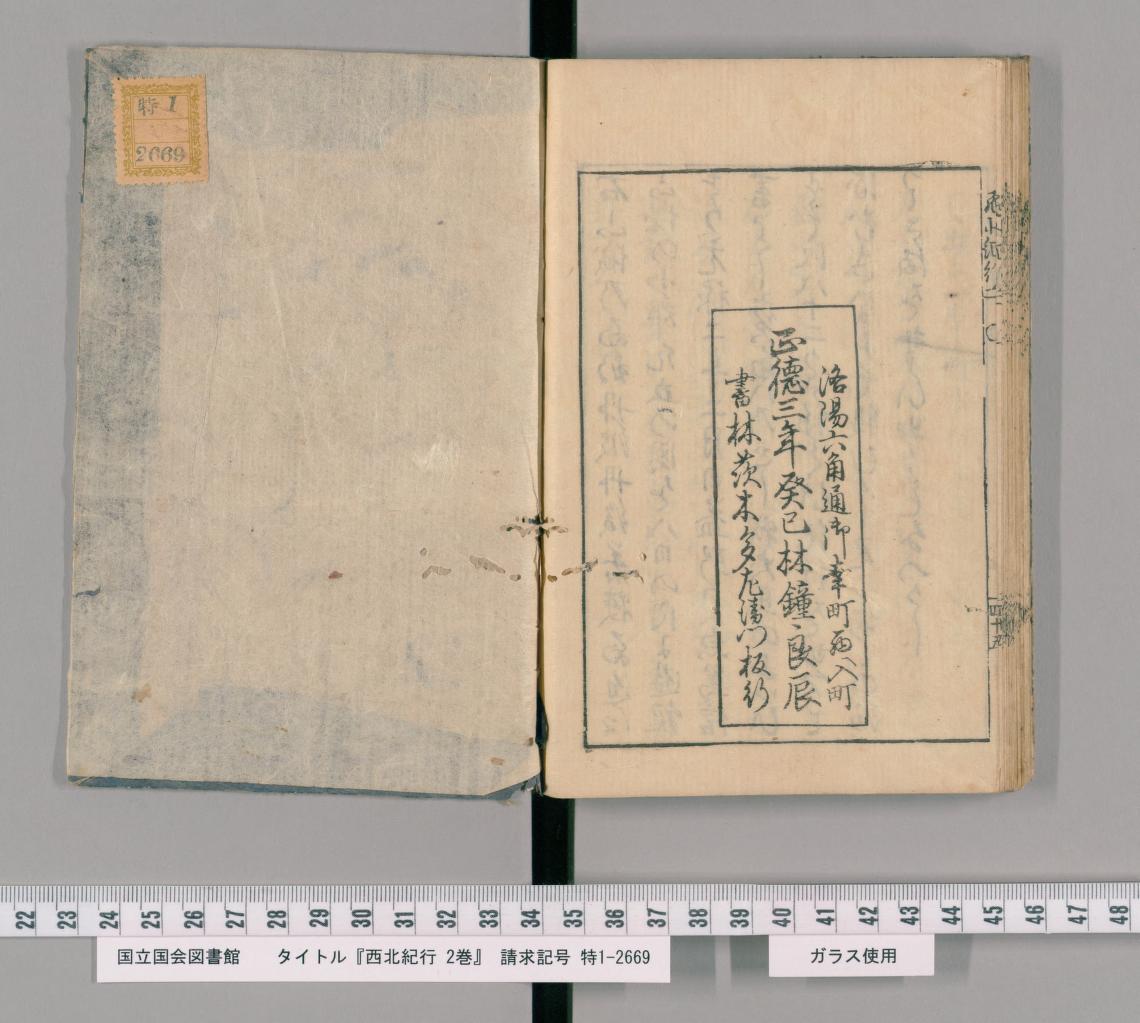 洛陽六角通御幸町西入町
正徳三年癸巳林鐘良辰
書林茨木多左衛門板行
西北紀行
四十五
特 1
2669
22 23 24 25 26 27 28 29 30 31 32 33 34 35 36 37 38 39 40 41 42 43 44 45 46 47 48
国立国会図書館 タイトル『西北紀行 2巻』 請求記号 特1-2669
ガラス使用